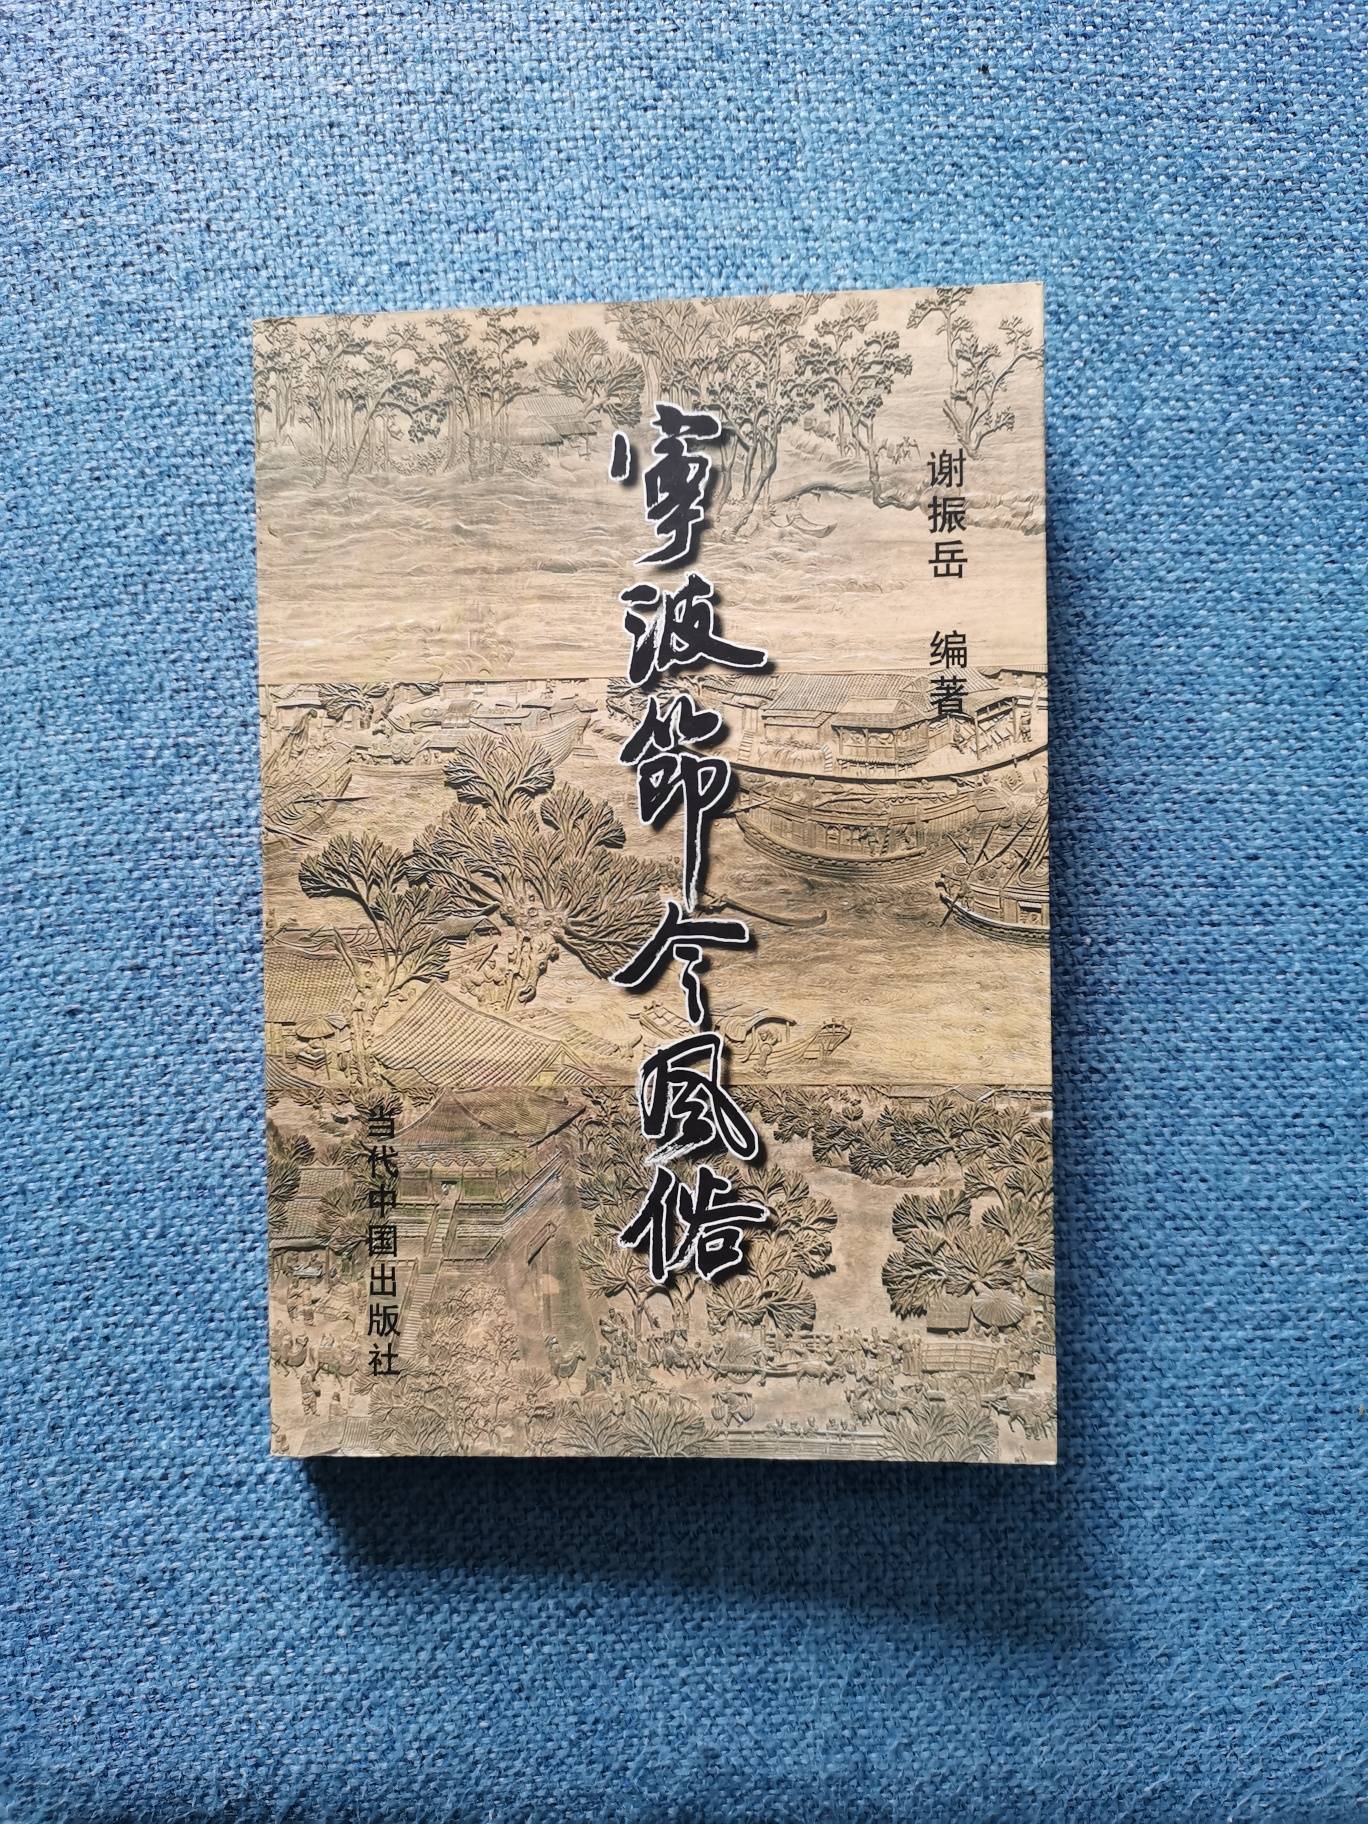 谢振岳 编著
寧波節令風俗
当代中国出版社